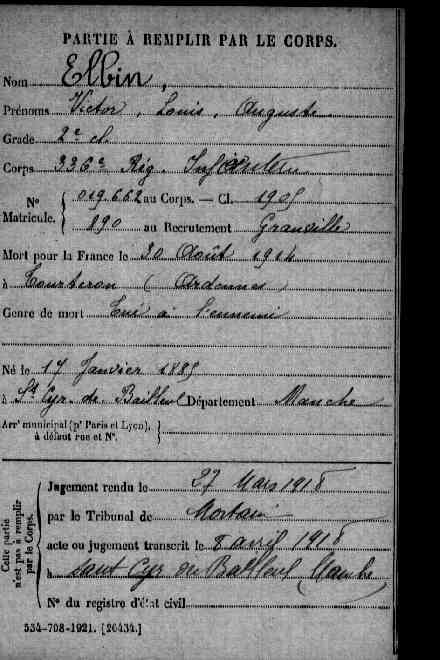 PARTIE À REMPLIR PAR LE CORPS.
Nom Elbin,
Prénoms Victor, Louis, Auguste
Grade 2e cl.
Corps 336e Rég. Infanterie
N° Matricule. { 019.662 au Corps. — Cl. 1905
890 au Recrutement Granville
Mort pour la France le 30 Août 1914
à Tourteron (Ardennes)
Genre de mort Tué à l'ennemi
Né le 17 Janvier 1885
à St Cyr. de Bailleul Département Manche
Arr' municipal (p' Paris et Lyon),
à défaut rue et N°.
Cette partie n'est pas à remplir par le Corps.
Jugement rendu le 27 Mars 1918
par le Tribunal de Mortain
acte ou jugement transcrit le 8 avril 1918
à Saint Cyr du Bailleul Manche
N° du registre d'état civil
534-708-1921. [26434.]